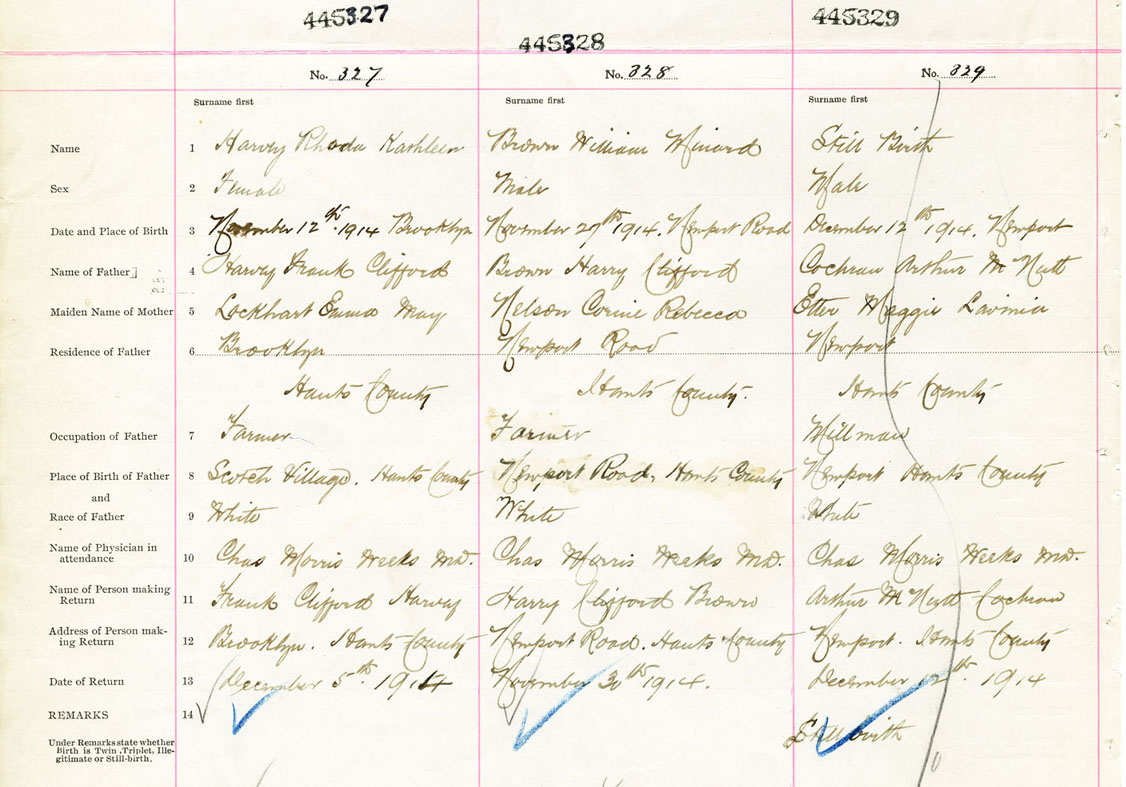 445327
445328
445329
No. 327
No. 328
No. 329
Surname first
Surname first
Surname first
Name 1 Harvey Rhoda Kathleen Brown William Minard Still Birth
Sex 2 Female Male Male
Date and Place of Birth 3 November 12th 1914 Brooklyn November 27th 1914. Newport Road December 12th 1914. Newport
Name of Father 4 Harvey Frank Clifford Brown Harry Clifford Cochran Arthur McNutt
Maiden Name of Mother 5 Lockhart Emma May Nelson Corine Rebecca Etter Maggie Lavinia
Residence of Father 6 Brooklyn Newport Road Newport
Hants County Hants County. Hants County
Occupation of Father 7 Farmer Farmer Millman
Place of Birth of Father 8 Scotch Village. Hants County Newport Road, Hants County Newport Hants County
and
Race of Father 9 White White White
Name of Physician in
attendance 10 Chas Morris Weeks M.D. Chas Morris Weeks M.D. Chas Morris Weeks M.D.
Name of Person making
Return 11 Frank Clifford Harvey Harry Clifford Brown Arthur McNutt Cochran
Address of Person mak-
ing Return 12 Brooklyn. Hants County Newport Road. Hants County Newport. Hants County
Date of Return 13 December 5th 1914 November 30th 1914. December 12th 1914
REMARKS 14 Stillbirth
Under Remarks state whether
Birth is Twin, Triplet, Ille-
gitimate or Still-birth.